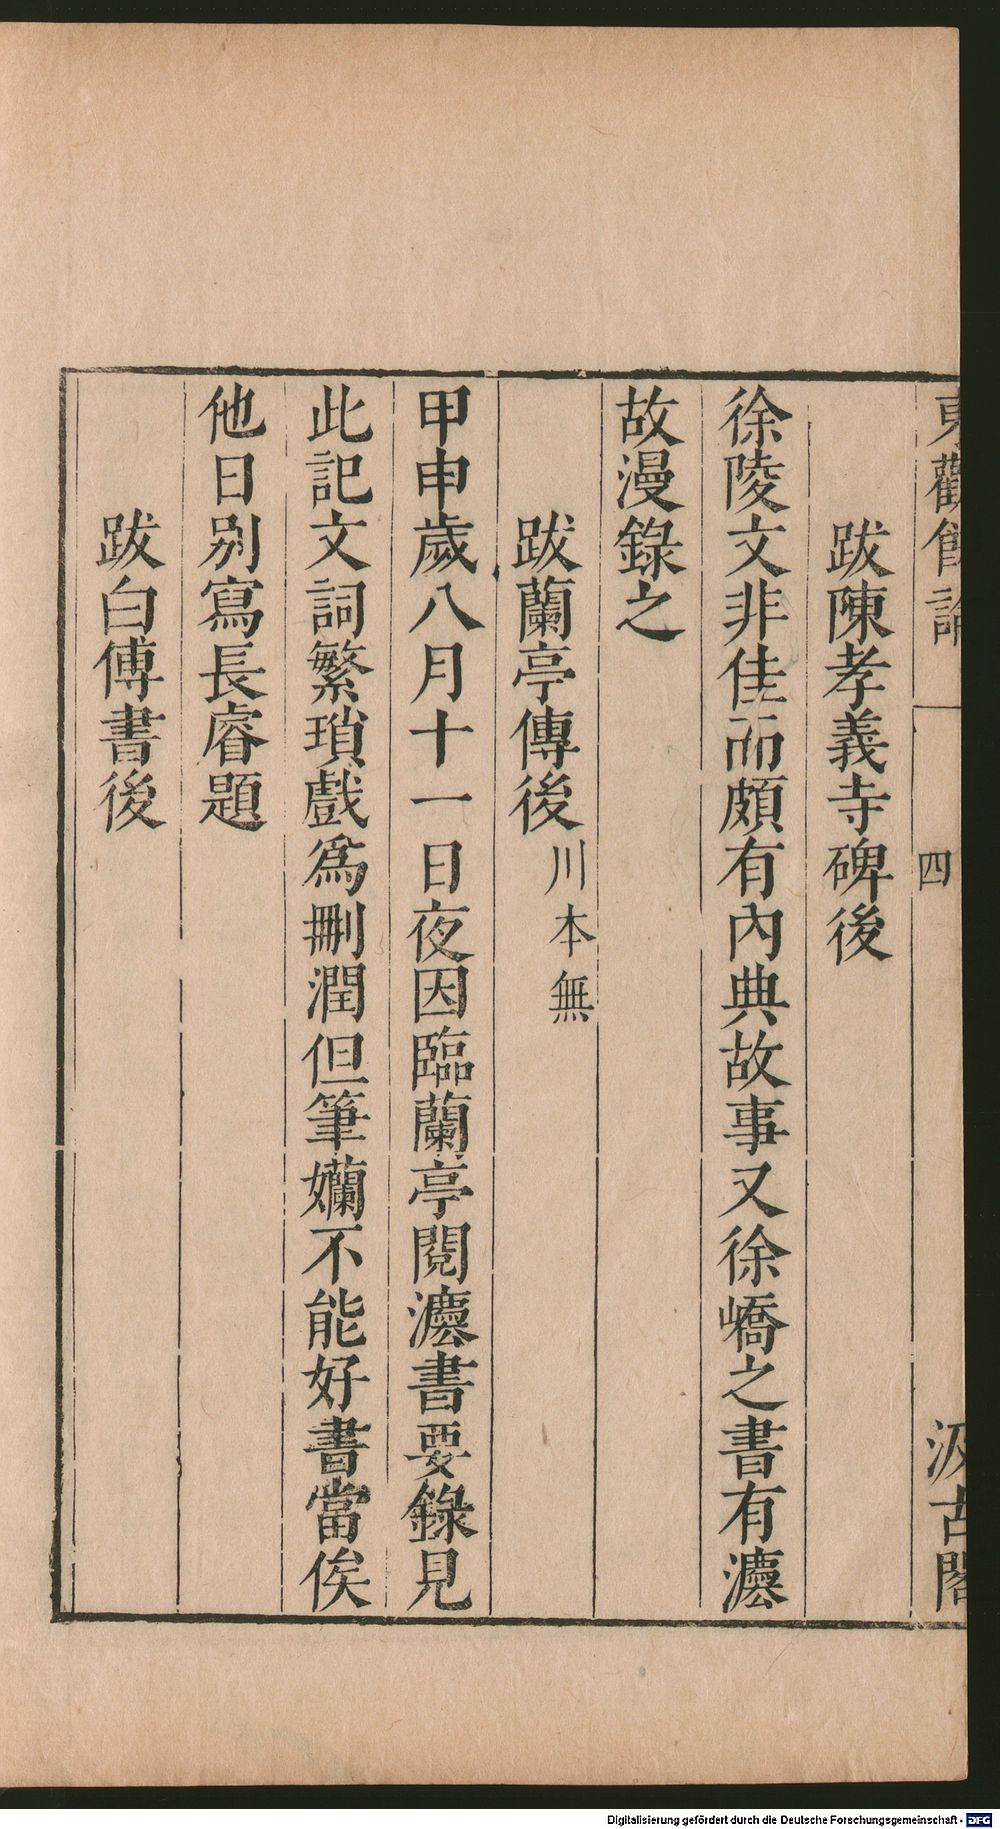 東觀餘論 四 汲古閣
跋陳孝義寺碑後
徐陵文非佳而頗有內典故事又徐嶠之書有灋
故漫錄之
跋蘭亭傳後川本無
甲申歲八月十一日夜因臨蘭亭閱灋書要錄見
此記文詞繁瑣戲爲刪潤但筆孏不能好書當俟
他日別寫長睿題
跋白傅書後
Digitalisierung gefördert durch die Deutsche Forschungsgemeinschaft - DFG